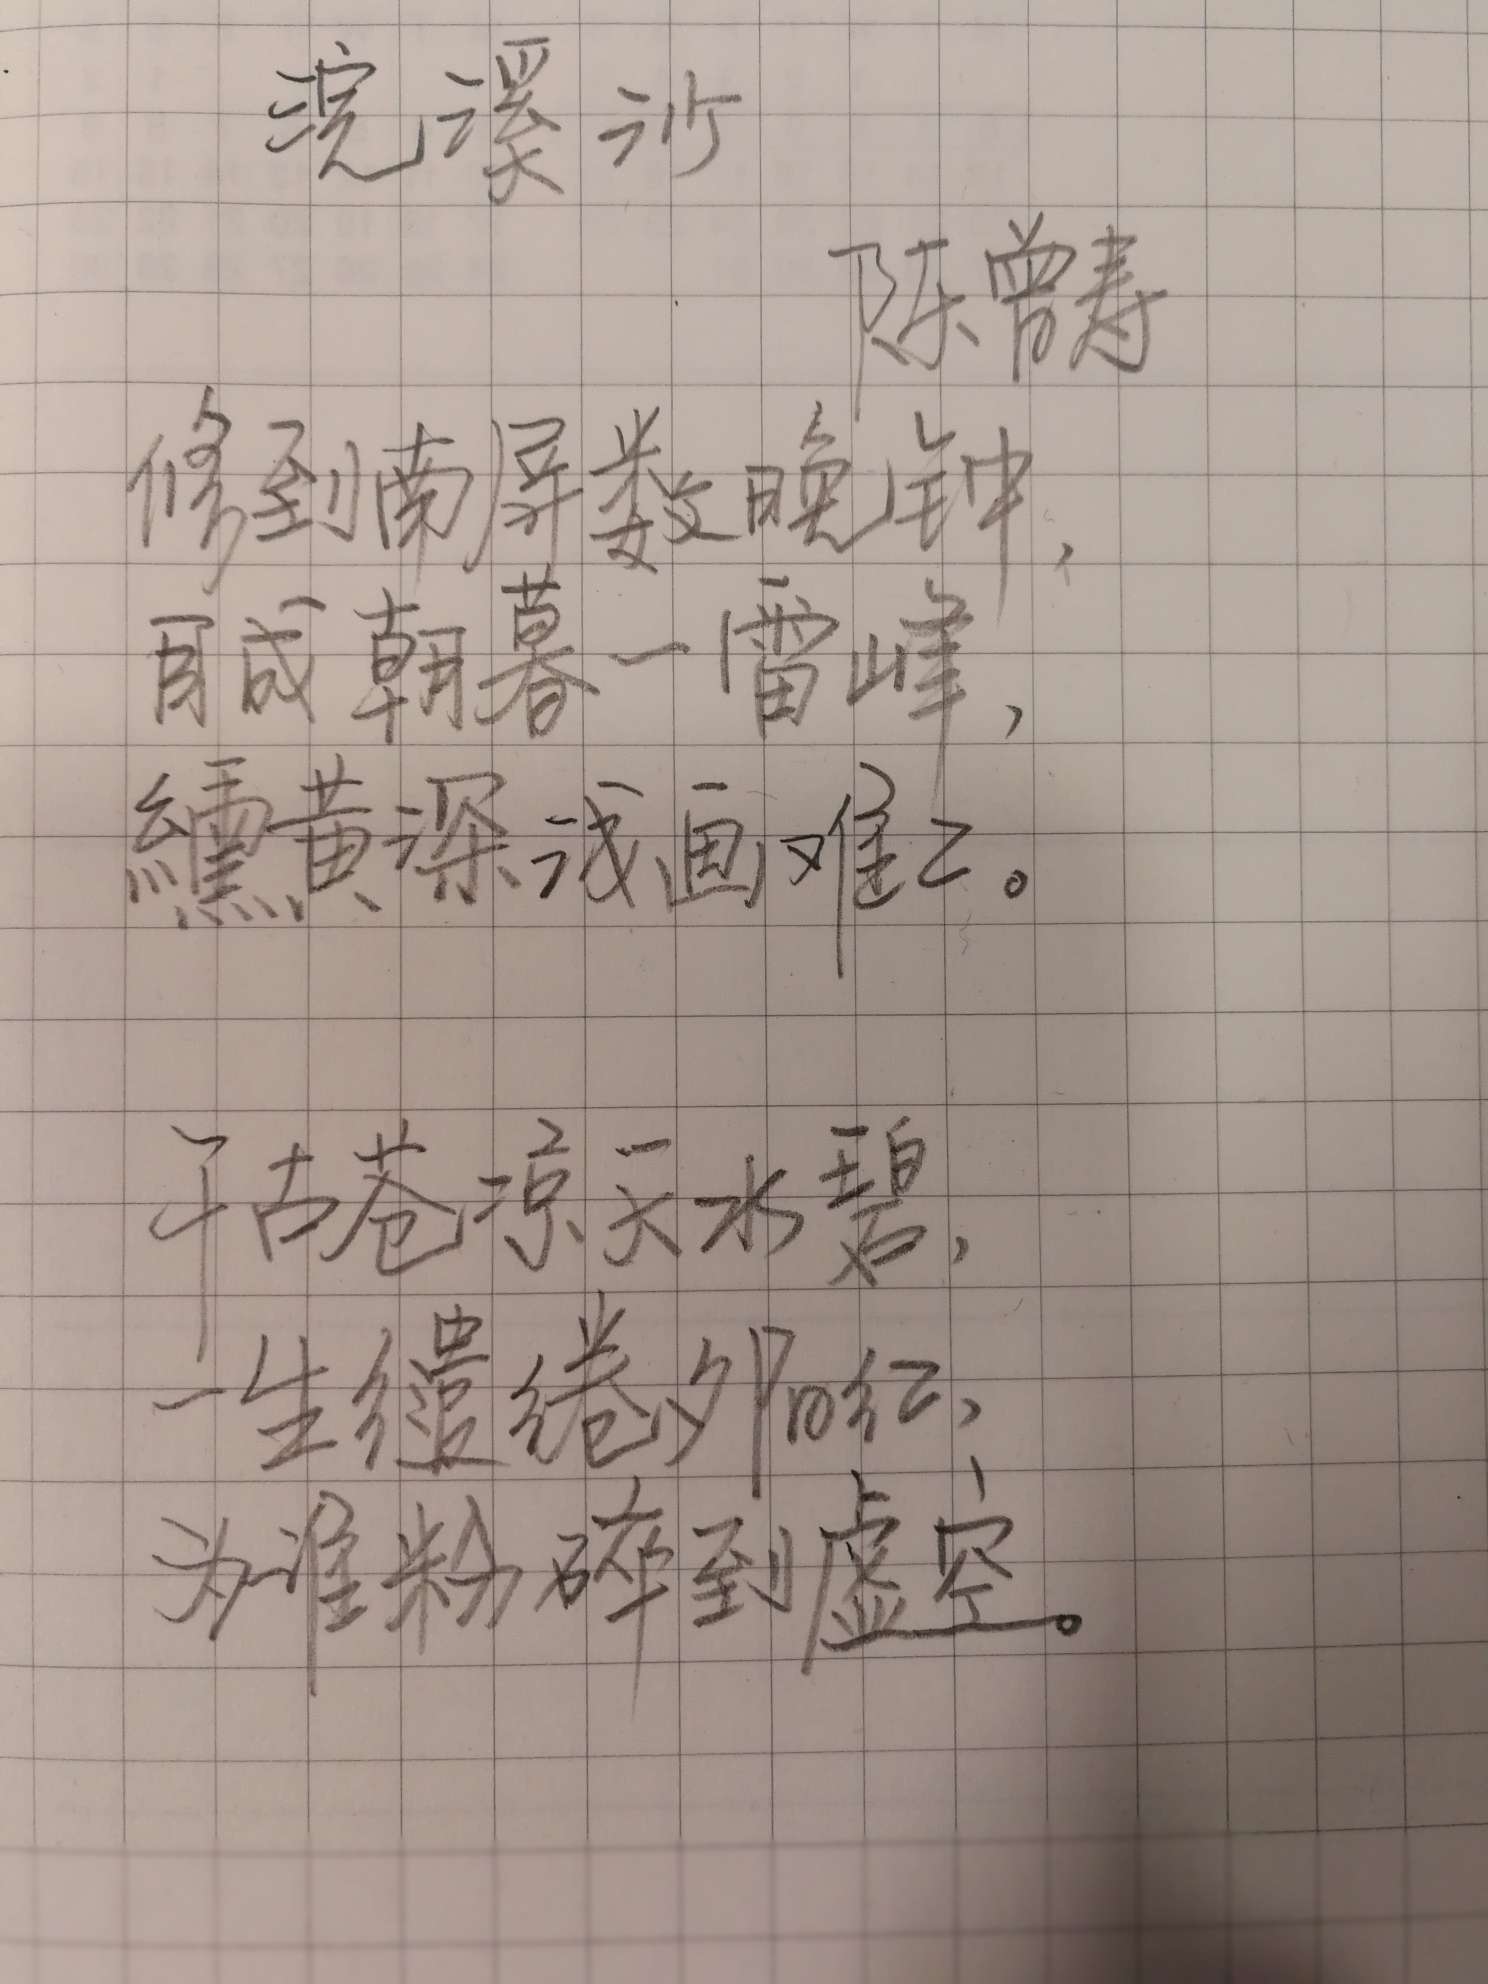 浣溪沙
陈曾寿
修到南屏数晚钟，
目成朝暮一雷峰，
纁黄深浅画难工。
千古苍凉天水碧，
一生缱绻夕阳红，
为谁粉碎到虚空。